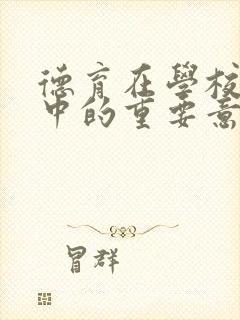 德育在學校
中的重要意
冒群